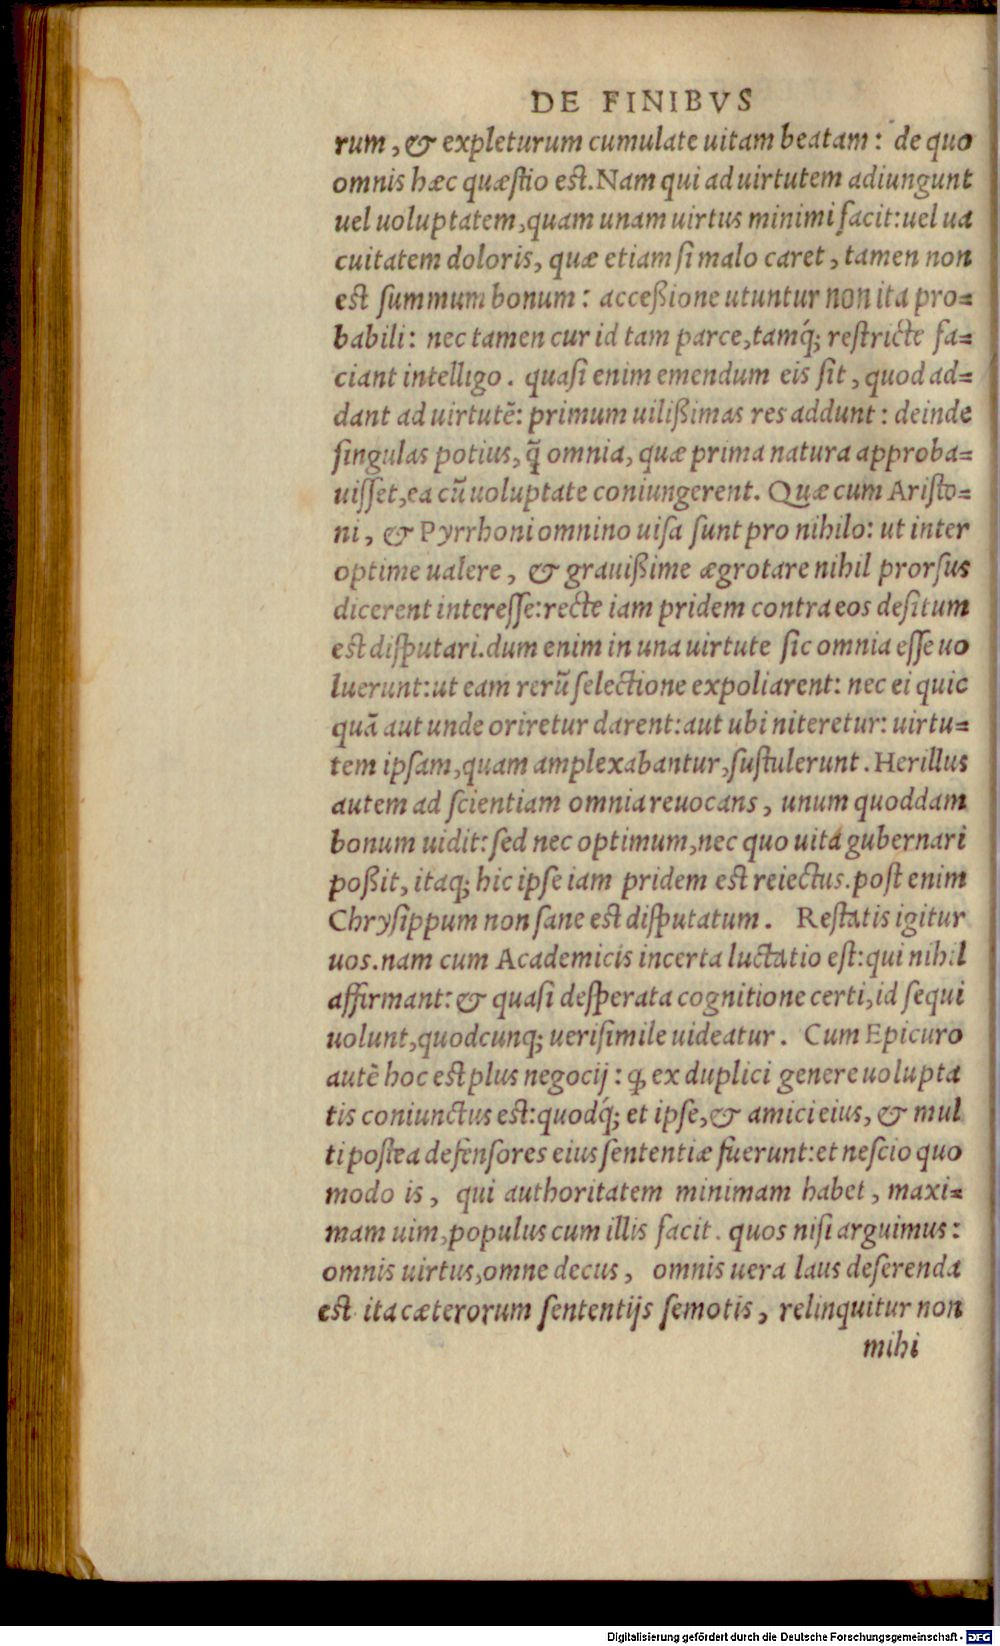 DE FINIBVS
rum, & expleturum cumulate uitam beatam: de quo
omnis hæc quæſtio eſt. Nam qui ad uirtutem adiungunt
uel uoluptatem, quam unam uirtus minimi facit: uel ua
cuitatem doloris, quæ etiam ſi malo caret, tamen non
eſt ſummum bonum: acceßione utuntur non ita pro=
babili: nec tamen cur id tam parce, tamq́; reſtricte fa=
ciant intelligo. quaſi enim emendum eis ſit, quod ad=
dant ad uirtutē: primum uilißimas res addunt: deinde
ſingulas potius, q̃ omnia, quæ prima natura approba=
uiſſet, ea cũ uoluptate coniungerent. Quæ cum Ariſto=
ni, & Pyrrhoni omnino uiſa ſunt pro nihilo: ut inter
optime ualere, & grauißime ægrotare nihil prorſus
dicerent intereſſe: recte iam pridem contra eos deſitum
eſt diſputari. dum enim in una uirtute ſic omnia eſſe uo
luerunt: ut eam rerũ ſelectione expoliarent: nec ei quic
quã aut unde oriretur darent: aut ubi niteretur: uirtu=
tem ipſam, quam amplexabantur, ſuſtulerunt. Herillus
autem ad ſcientiam omnia reuocans, unum quoddam
bonum uidit: ſed nec optimum, nec quo uita gubernari
poßit, itaq; hic ipſe iam pridem eſt reiectus. poſt enim
Chryſippum non ſane eſt diſputatum. Reſtatis igitur
uos. nam cum Academicis incerta luctatio eſt: qui nihil
affirmant: & quaſi deſperata cognitione certi, id ſequi
uolunt, quodcunq; ueriſimile uideatur. Cum Epicuro
autē hoc eſt plus negocij: ꝙ ex duplici genere uolupta
tis coniunctus eſt: quodq́; et ipſe, & amici eius, & mul
ti poſtea defenſores eius ſententiæ fuerunt: et neſcio quo
modo is, qui authoritatem minimam habet, maxi=
mam uim, populus cum illis facit. quos niſi arguimus:
omnis uirtus, omne decus, omnis uera laus deſerenda
eſt. ita cæterorum ſententijs ſemotis, relinquitur non
mihi
Digitalisierung gefördert durch die Deutsche Forschungsgemeinschaft - DFG